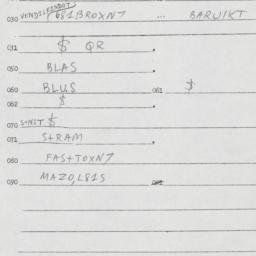 030 VENDIL VENDOT 081BROXN7 ... BARWIKT
031 $ QR .
050 BLAS .
060 BLUS 061 $
062 $ .
070 S+NLT $
071 S+RAM .
080 FAS+TOXN7
090 MAZO,L81S